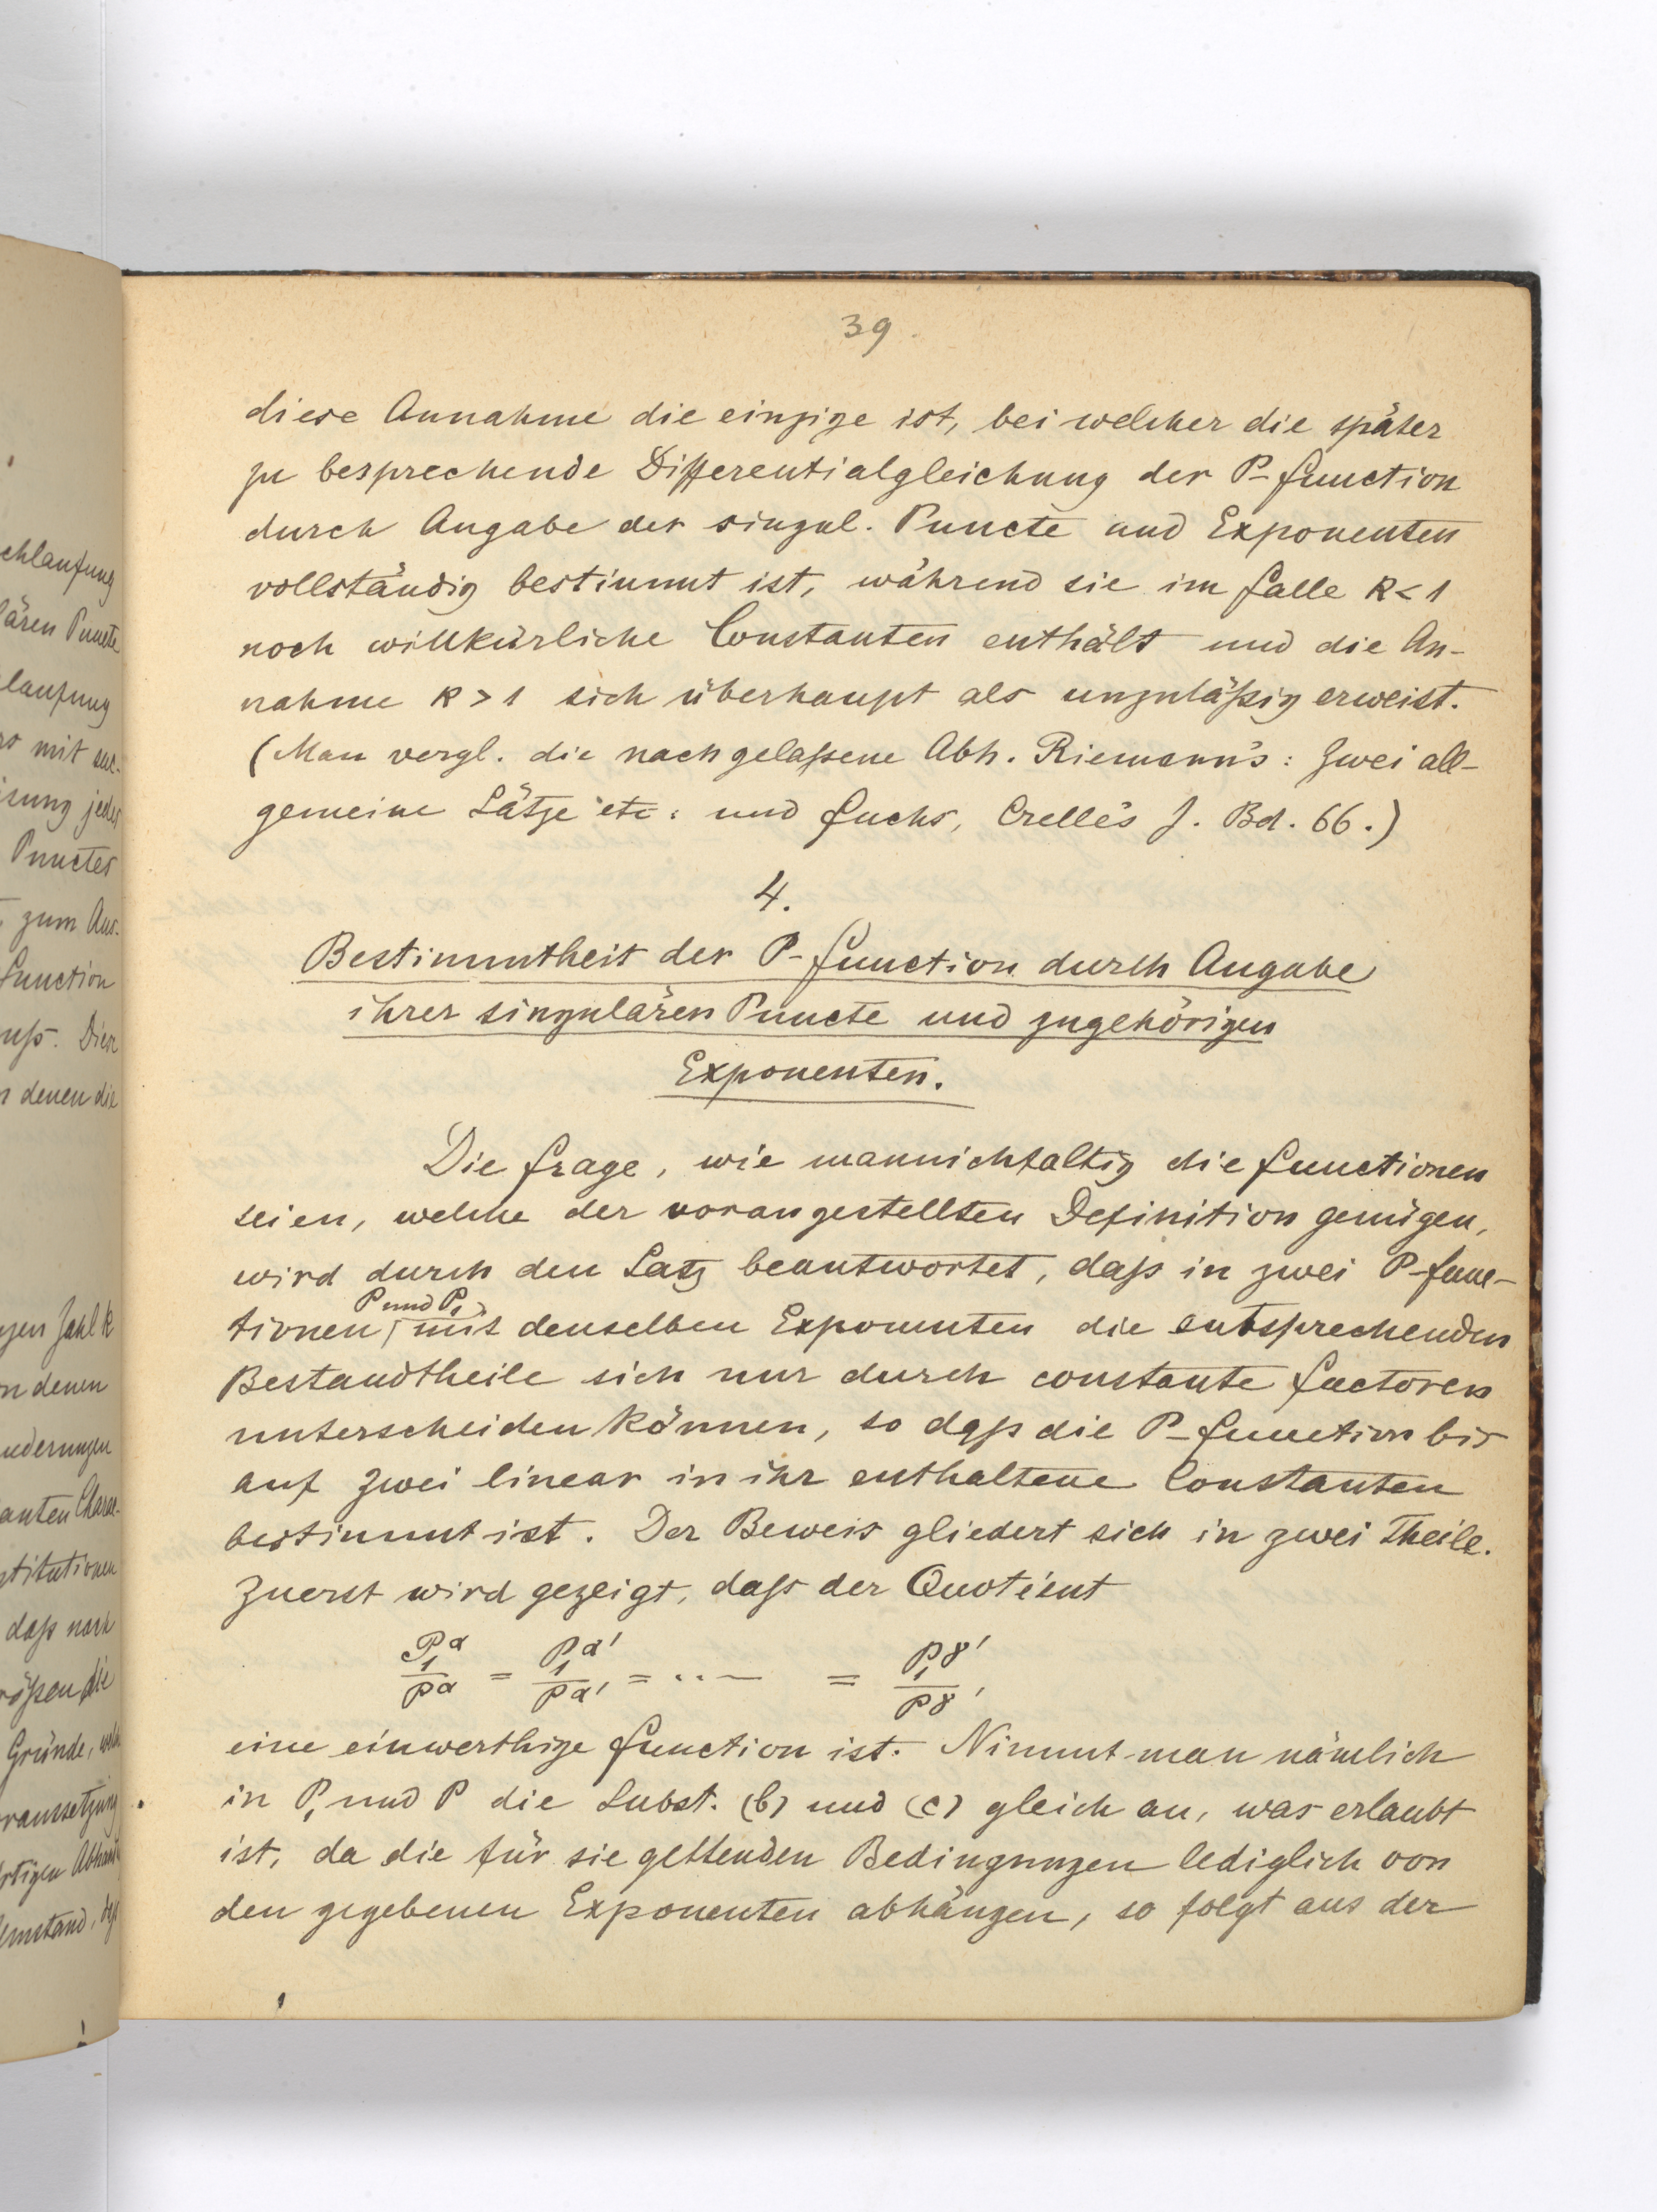 39.
diese Annahme die einzige ist, bei welcher die später
zu besprechende Differentialgleichung der P-Function
durch Angabe der singul. Puncte und Exponenten
vollständig bestimmt ist, während sie im Falle k < 1
noch willkürliche Constanten enthält und die An-
nahme k > 1 sich überhaupt als unzuläßig erweist.
(Man vergl. die nachgelaßene Abh. Riemann's: Zwei all-
gemeine Sätze etc: und Fuchs, Crelle's J. Bd. 66.)
4.
Bestimmtheit der P-Function durch Angabe
ihrer singulären Puncte und zugehörigen
Exponenten.
Die Frage, wie mannichfaltig die Functionen
seien, welche der vorangestellten Definition genügen,
wird durch den Satz beantwortet, daß in zwei P-Func-
P und P₁
tionen, mit denselben Exponenten die entsprechenden
Bestandtheile sich nur durch constante Factoren
unterscheiden können, so daß die P-Function bis
auf zwei linear in ihr enthaltene Constanten
bestimmt ist. Der Beweis gliedert sich in zwei Theile.
Zuerst wird gezeigt, daß der Quotient
P₁^α / P^α = P₁^α' / P^α' = ... = P₁^γ' / P^γ'
eine einwerthige Function ist. Nimmt man nämlich
in P₁ und P die Subst. (b) und (c) gleich an, was erlaubt
ist, da die für sie geltenden Bedingungen lediglich von
den gegebenen Exponenten abhängen, so folgt aus der
chlaufung
lären Puncte
laufung
mit
isung jedes
Punctes
zum Aus-
Function
uß. Diese
denen die
gen Zahl k
n denen
nderungen
anten Charac-
stitutionen
daß nach
rößen die
Gründe,
raussetzung
rtigen